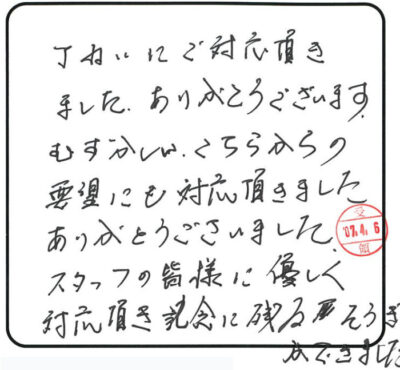 丁ねいにご対応頂き
ました。ありがとうございます。
むずかしい、こちらからの
要望にも対応頂きました
ありがとうございました。
スタッフの皆様に優しく
対応頂き記念に残るおそうぎ
ができました
受
'07.4.6
領